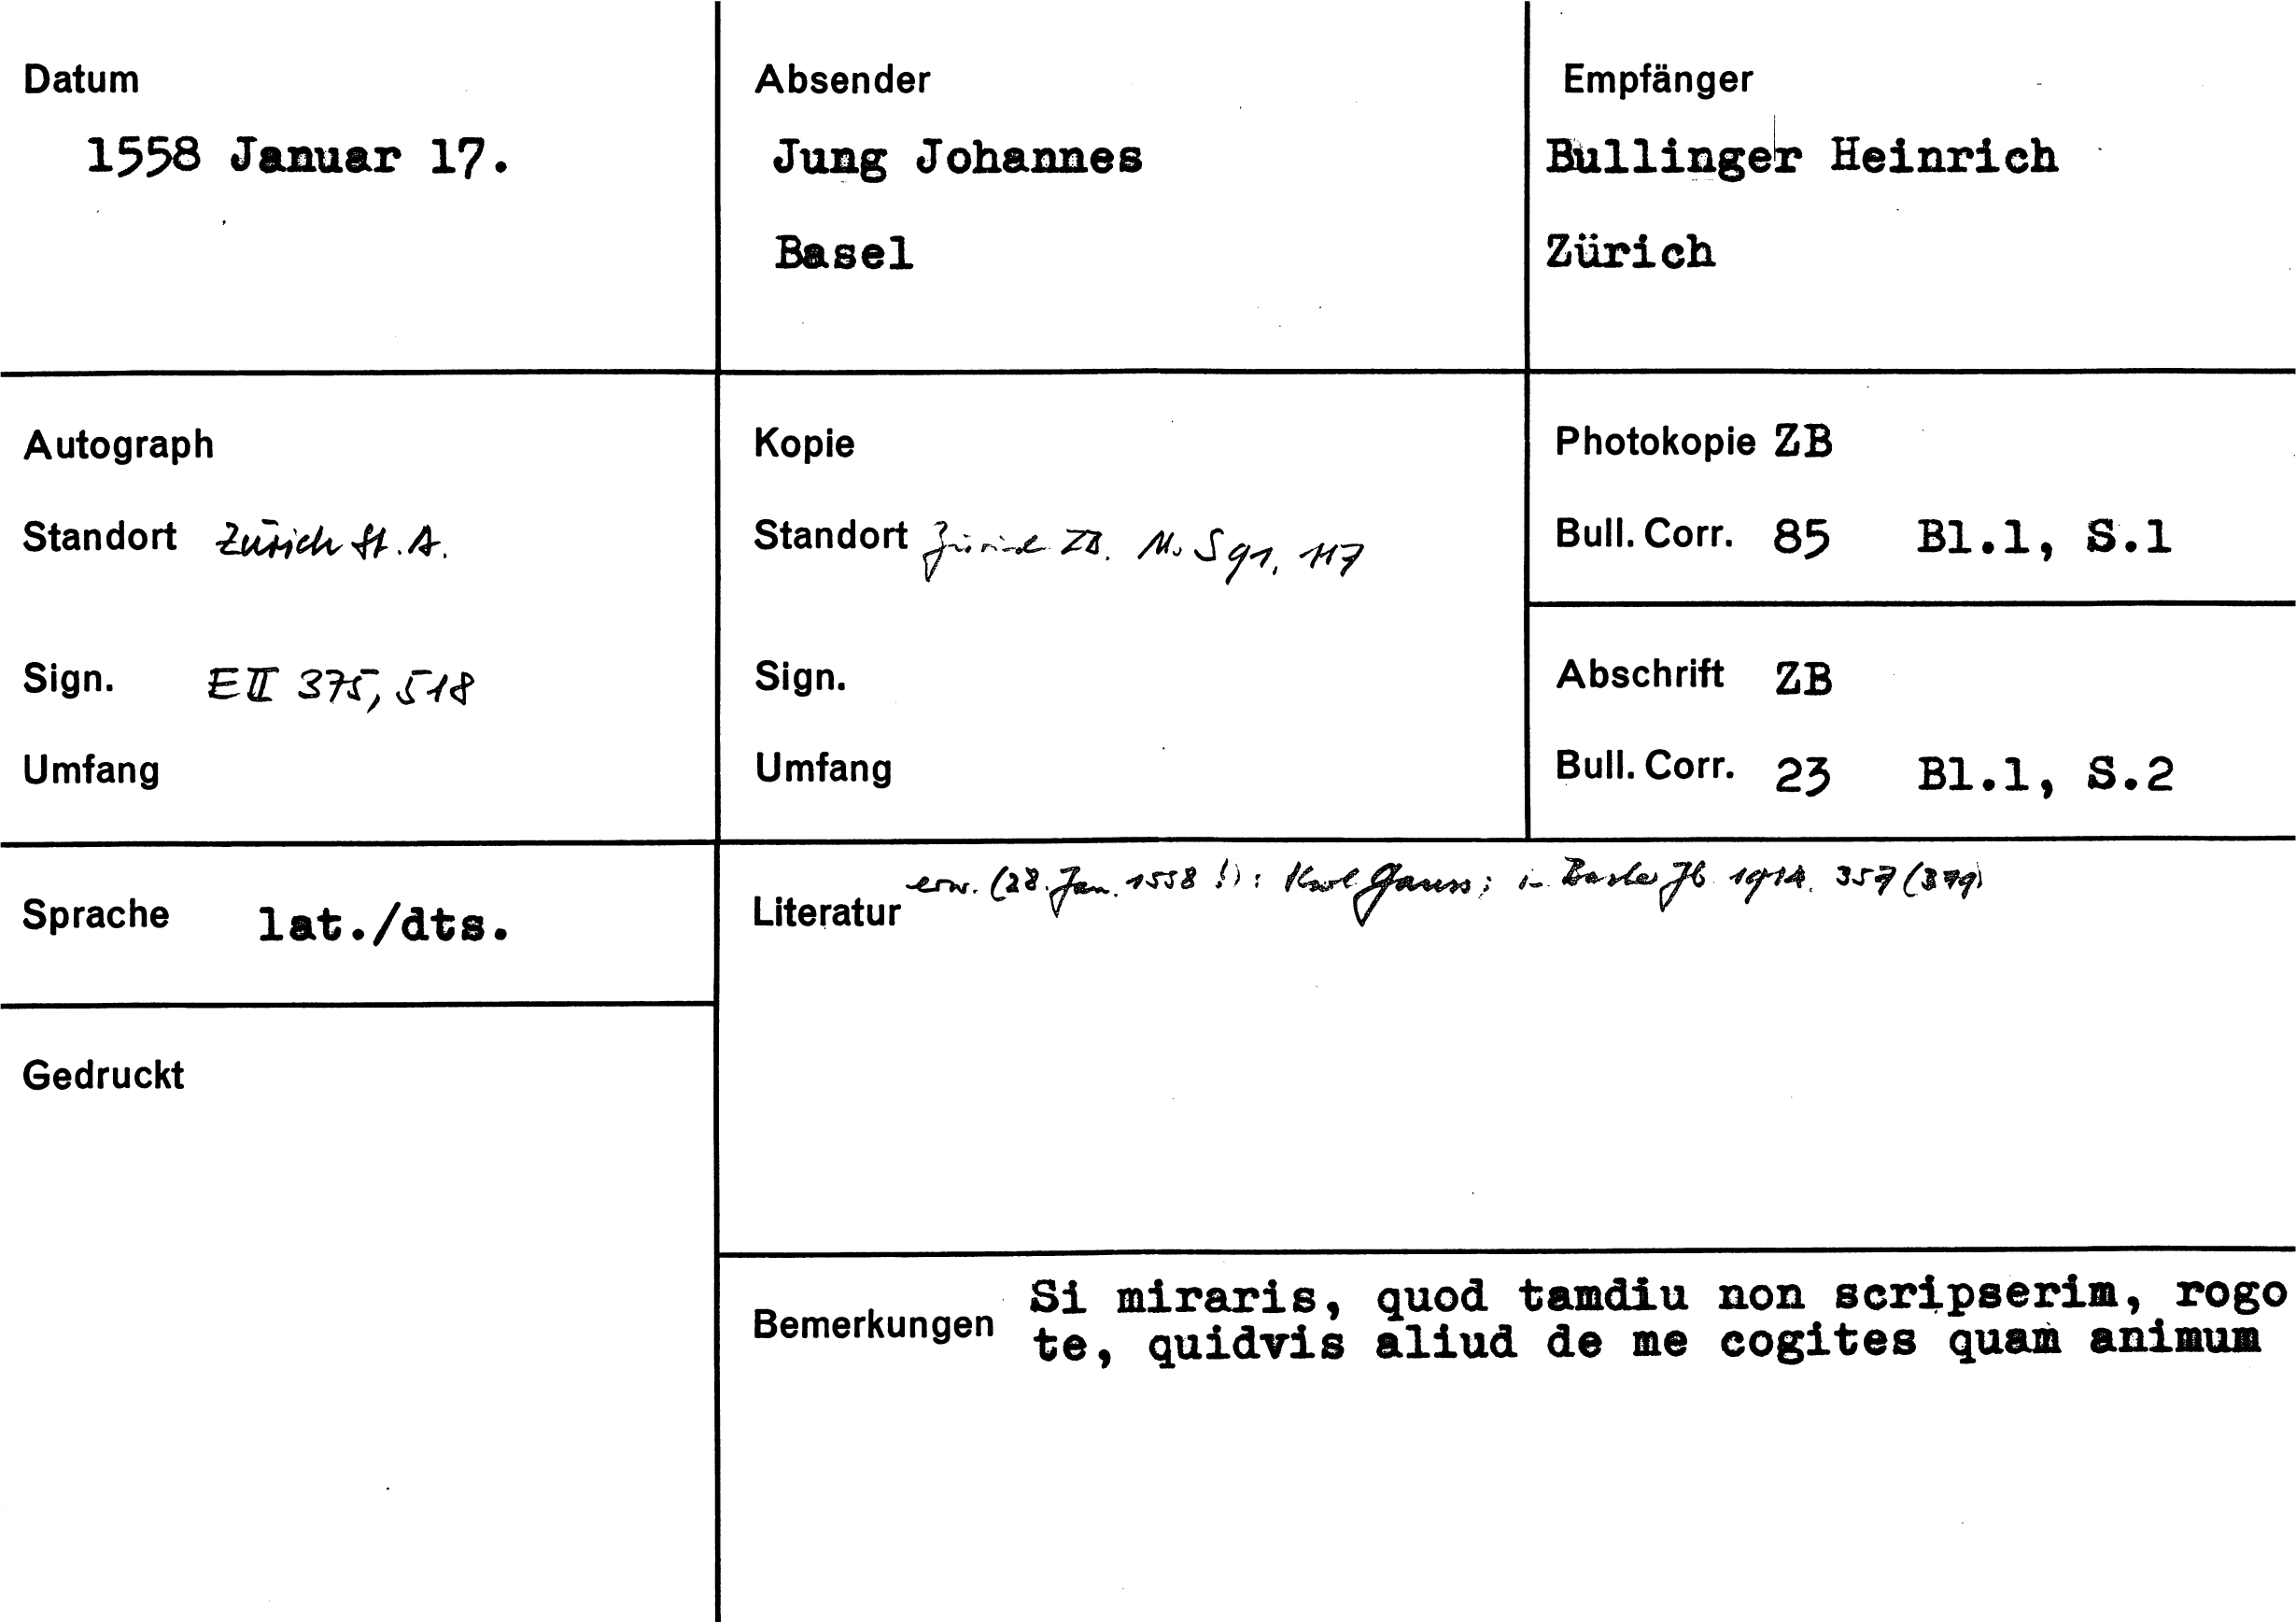 Datum
1558 Januar 17.
Absender
Jung Johannes
Basel
Empfänger
Bullinger Heinrich
Zürich
Autograph
Standort Zürich St. A.
Sign. E II 375, 518
Umfang
Kopie
Standort Zürich ZB. Ms S 91, 117
Sign.
Umfang
Photokopie ZB
Bull. Corr. 85 Bl.1, S.1
Abschrift ZB
Bull. Corr. 23 Bl.1, S.2
Sprache lat./dts.
Gedruckt
Literatur erw. (28. Jan. 1558 !): Karl Gauss; in Basler Jb 1914. 357 (379)
Bemerkungen Si miraris, quod tamdiu non scripserim, rogo
te, quidvis aliud de me cogites quam animum